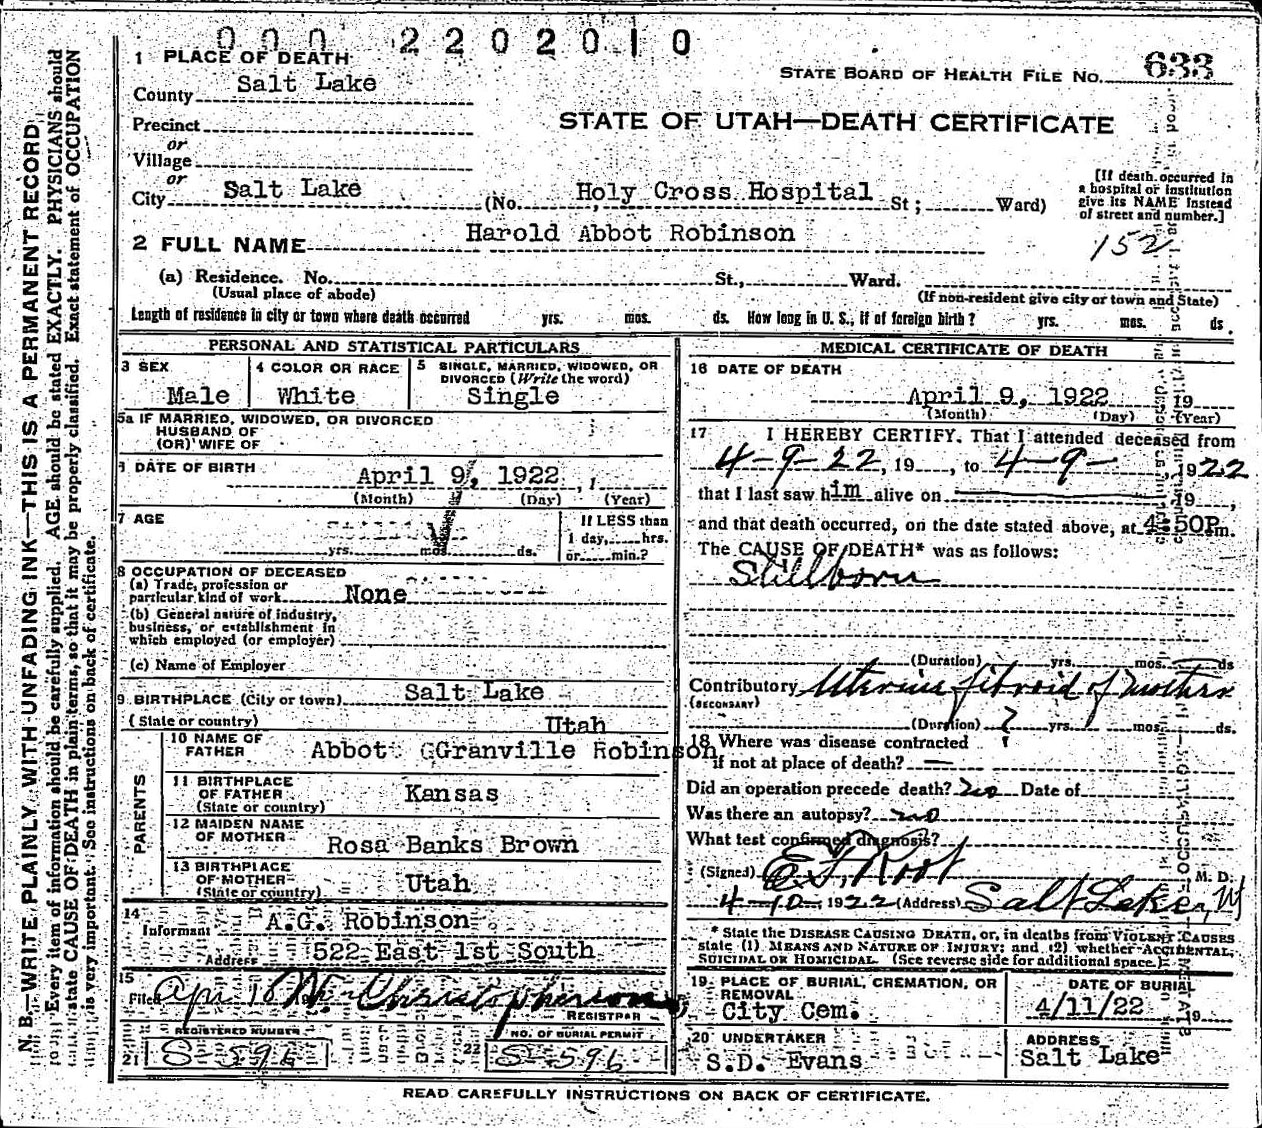 000 2202010
1 PLACE OF DEATH
STATE BOARD OF HEALTH FILE NO. 633
County Salt Lake
STATE OF UTAH—DEATH CERTIFICATE
Precinct
or
Village
or
City Salt Lake (No. Holy Cross Hospital St; Ward)
[If death occurred in a hospital or institution give its NAME instead of street and number.]
2 FULL NAME Harold Abbot Robinson
152
(a) Residence. No. St., Ward.
(Usual place of abode) (If non-resident give city or town and State)
Length of residence in city or town where death occurred yrs. mos. ds. How long in U. S., if of foreign birth? yrs. mos. ds.
PERSONAL AND STATISTICAL PARTICULARS
3 SEX Male
4 COLOR OR RACE White
5 SINGLE, MARRIED, WIDOWED, OR DIVORCED (Write the word) Single
5a IF MARRIED, WIDOWED, OR DIVORCED
HUSBAND OF
(OR) WIFE OF
DATE OF BIRTH April 9, 1922
(Month) (Day) (Year)
7 AGE
yrs. mos. ds.
If LESS than
1 day, hrs.
or min.?
8 OCCUPATION OF DECEASED
(a) Trade, profession or
particular kind of work None
(b) General nature of industry,
business, or establishment in
which employed (or employer)
(c) Name of Employer
9 BIRTHPLACE (City or town) Salt Lake
(State or country) Utah
PARENTS
10 NAME OF FATHER Abbot Granville Robinson
11 BIRTHPLACE OF FATHER (State or country) Kansas
12 MAIDEN NAME OF MOTHER Rosa Banks Brown
13 BIRTHPLACE OF MOTHER (State or country) Utah
14 Informant A.G. Robinson
Address 522 East 1st South
15 Filed Apr 10 Wm Christopherson
REGISTRAR
REGISTERED NUMBER
21 S-596
NO. OF BURIAL PERMIT
22 S-596
MEDICAL CERTIFICATE OF DEATH
16 DATE OF DEATH
April 9, 1922 19
(Month) (Day) (Year)
17 I HEREBY CERTIFY, That I attended deceased from
4-9-22, 19 , to 4-9- 1922
that I last saw him alive on 19 ,
and that death occurred, on the date stated above, at 4:50P m.
The CAUSE OF DEATH* was as follows:
Stillborn
(Duration) yrs. mos. ds
Contributory Uterine fibroid of mother
(SECONDARY)
(Duration) ? yrs. mos. ds.
18 Where was disease contracted
if not at place of death? —
Did an operation precede death? no Date of
Was there an autopsy? no
What test confirmed diagnosis?
(Signed) E.F. Root M. D.
4-10-1922 (Address) Salt Lake, Ut
* State the DISEASE CAUSING DEATH, or, in deaths from VIOLENT CAUSES
state (1) MEANS AND NATURE OF INJURY; and (2) whether ACCIDENTAL,
SUICIDAL OR HOMICIDAL. (See reverse side for additional space.)
19 PLACE OF BURIAL, CREMATION, OR REMOVAL
City Cem.
DATE OF BURIAL
4/11/22 19
20 UNDERTAKER
S.D. Evans
ADDRESS
Salt Lake
READ CAREFULLY INSTRUCTIONS ON BACK OF CERTIFICATE.
N. B.—WRITE PLAINLY WITH UNFADING INK—THIS IS A PERMANENT RECORD
Every item of information should be carefully supplied. AGE should be stated EXACTLY. PHYSICIANS should
state CAUSE OF DEATH in plain terms, so that it may be properly classified. Exact statement of OCCUPATION
is very important. See instructions on back of certificate.